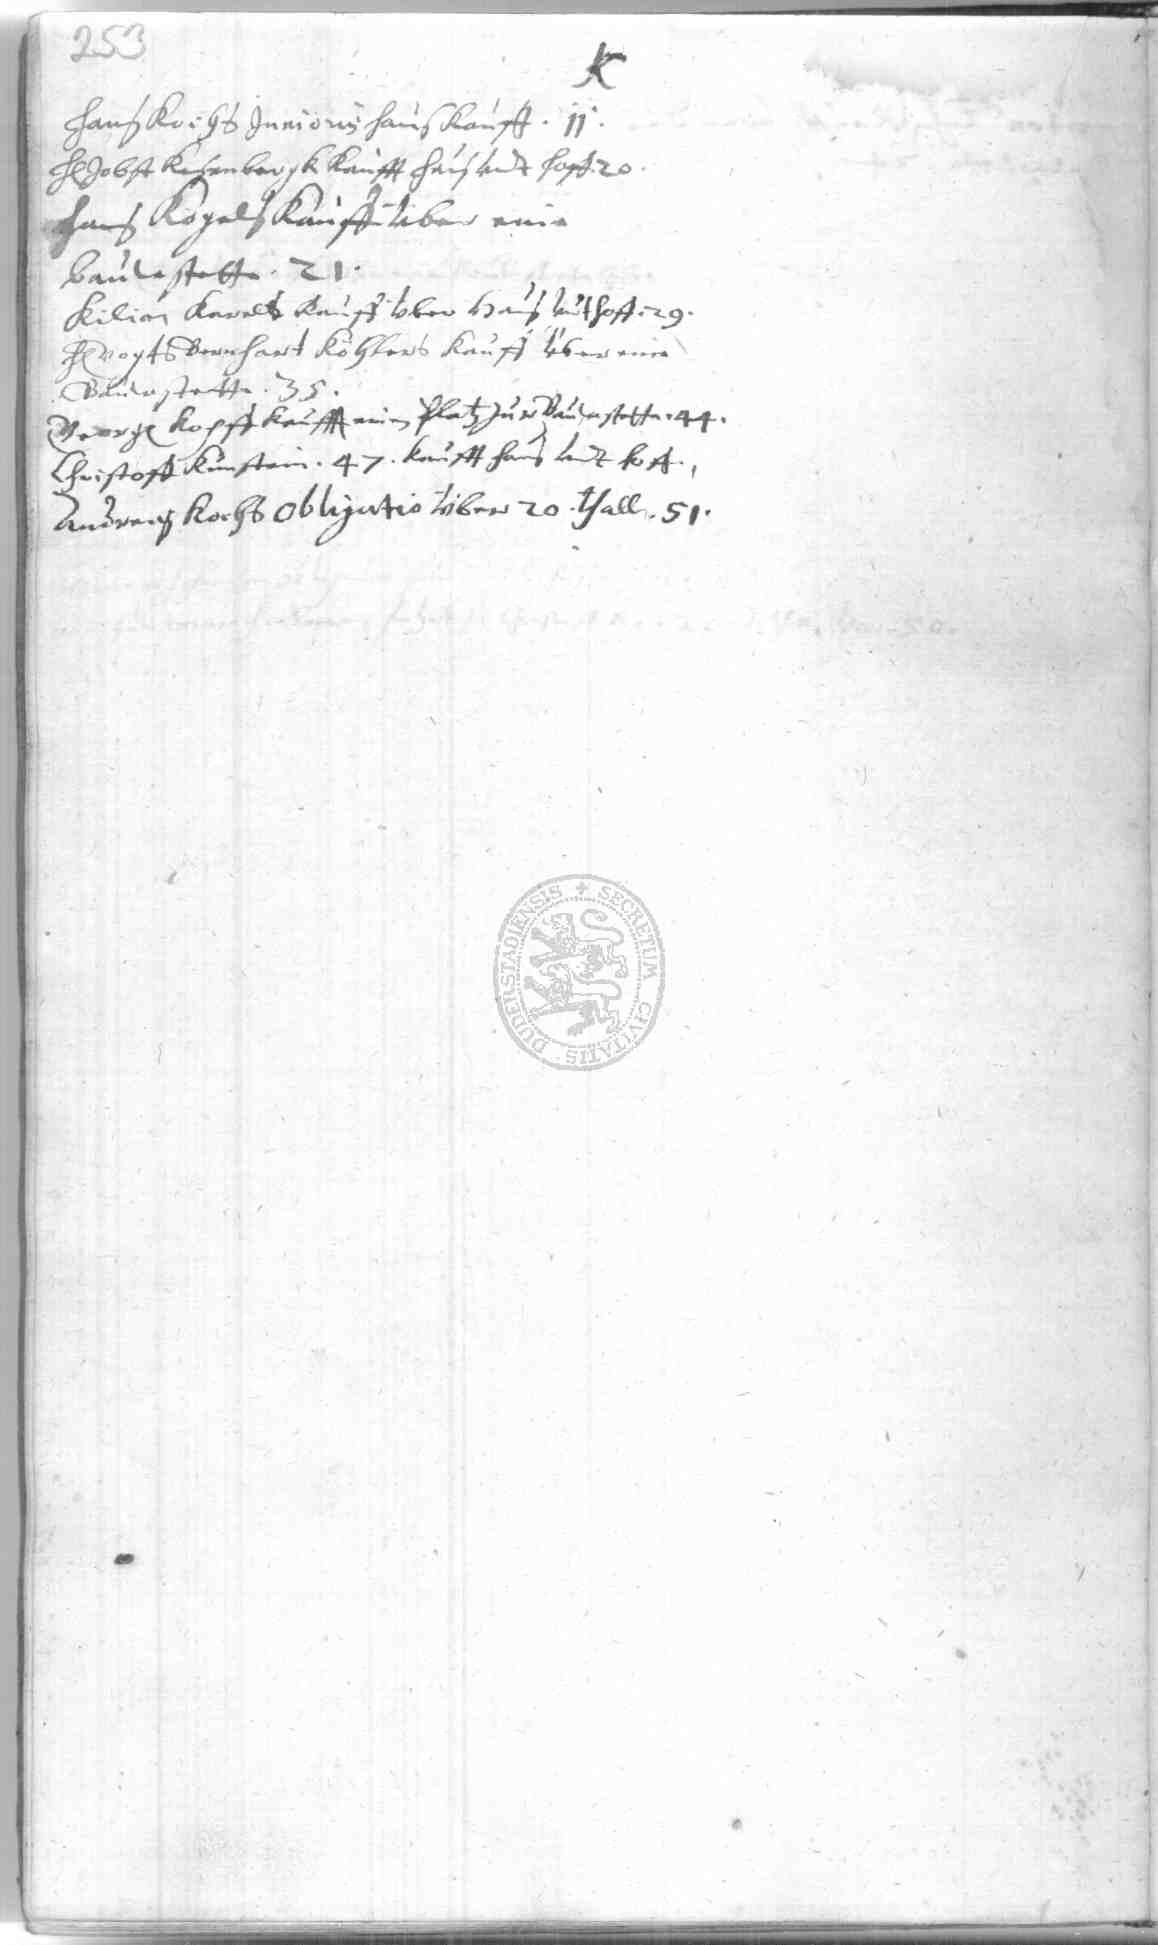 253
K
Hanß Kochs Junioris hauß Kauff. 11.
H Jobst Kesenbergk Kaufft hauß undt hoff. 20.
Hans Kogels Kauff über eine
baudestette. 21.
Kilian Kauff über Hauß undt hoff. 29.
H Vogts Bernhart Köhlers Kauff über eine
Baudestette. 35.
George Kopff kaufft einen Platz zur Baudestette. 44.
Christoff Kunstein. 47. kaufft hauß undt hoff.
Andreaß Kochs Obligatio über 20 thall. 51.
SECRETUM CIVITATIS DUDERSTADIENSIS